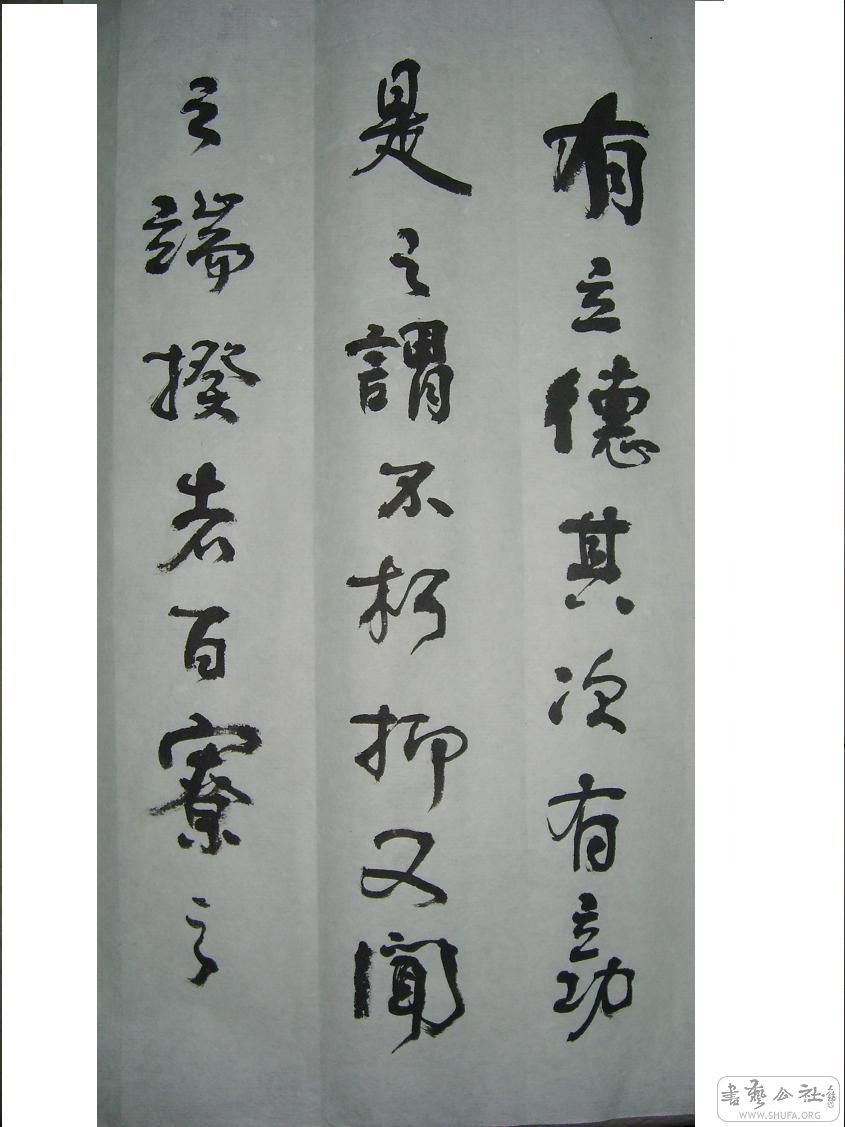 有立德其次有立功
是之謂不朽抑又聞
之端揆者百寮之
書藝公社
WWW.SHUFA.ORG